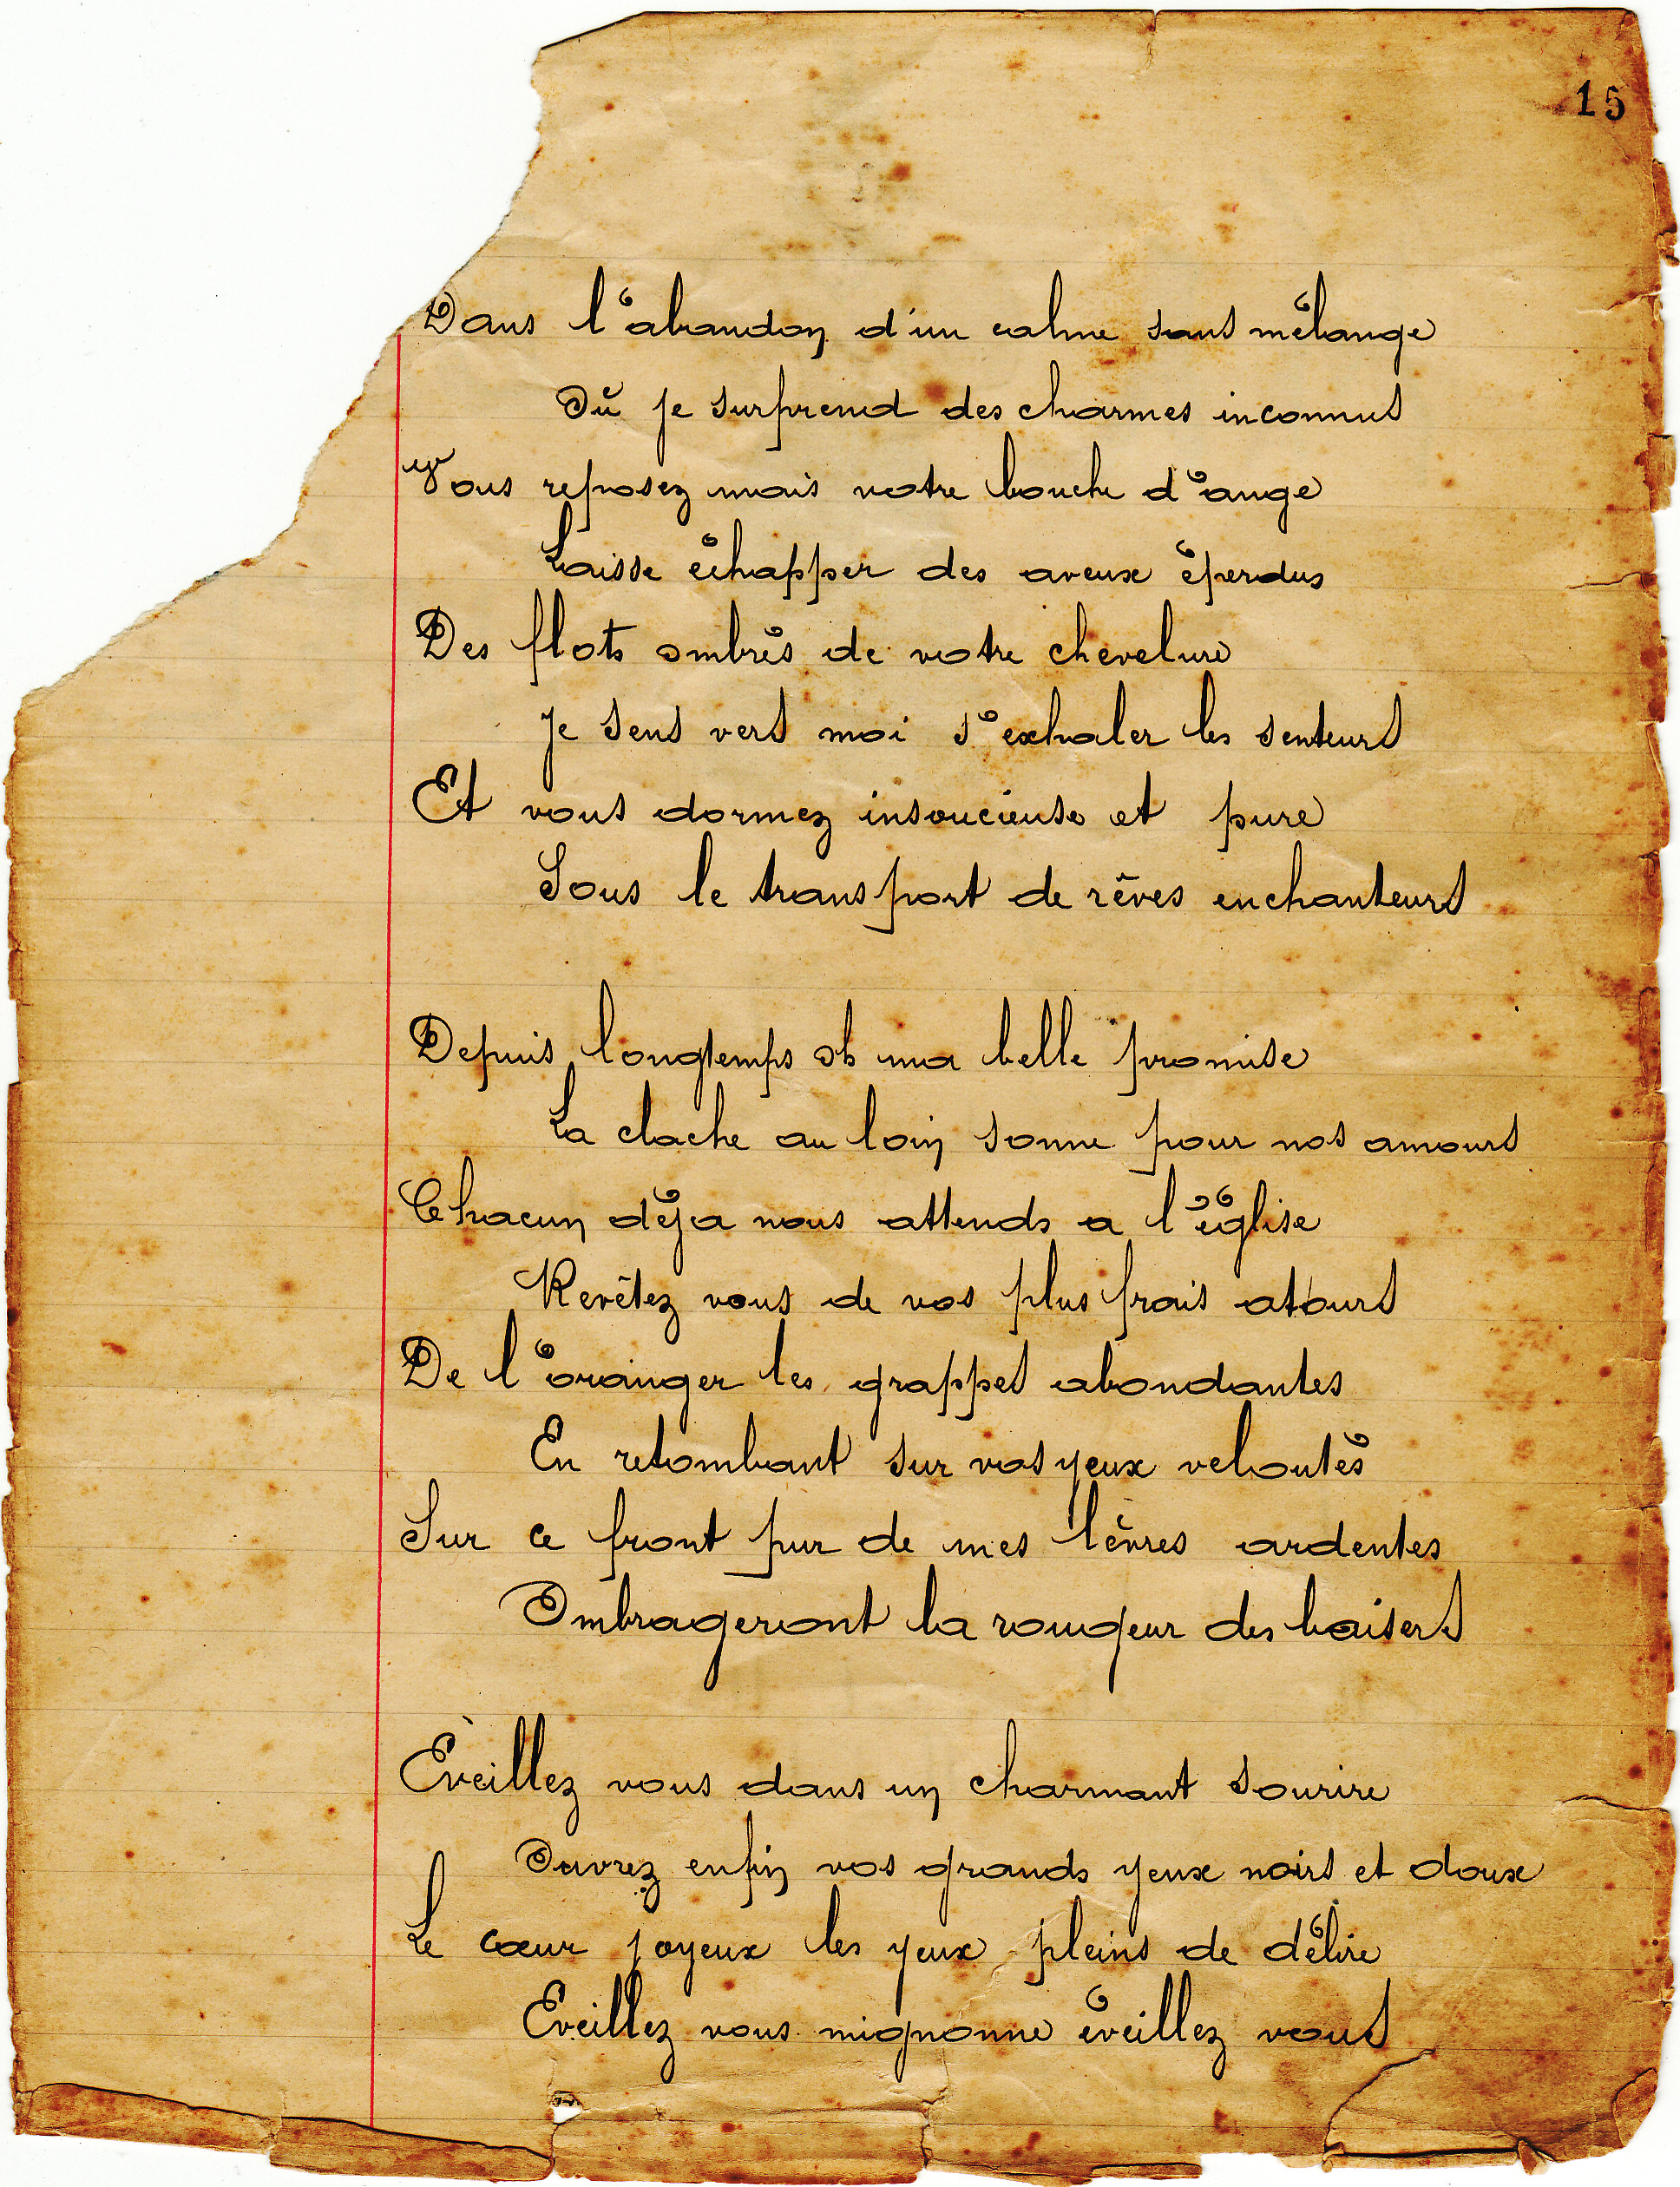 15
Dans l'abandon d'un calme sans mélange
Où je surprend des charmes inconnus
Vous reposez mais votre bouche d'ange
Laisse échapper des aveux éperdus
Des flots ombrés de votre chevelure
Je sens vers moi s'exhaler les senteurs
Et vous dormez insoucieuse et pure
Sous le transport de rêves enchanteurs
Depuis longtemps oh ma belle promise
La cloche au loin sonne pour nos amours
Chacun déja nous attends a l'église
Revêtez vous de vos plus frais atours
De l'oranger les grappes abondantes
En retombant sur vos yeux veloutés
Sur ce front pur de mes lèvres ardentes
Ombrageront la rougeur des baisers
Éveillez vous dans un charmant sourire
Ouvrez enfin vos grands yeux noirs et doux
Le cœur joyeux les yeux pleins de délire
Eveillez vous mignonne éveillez vous